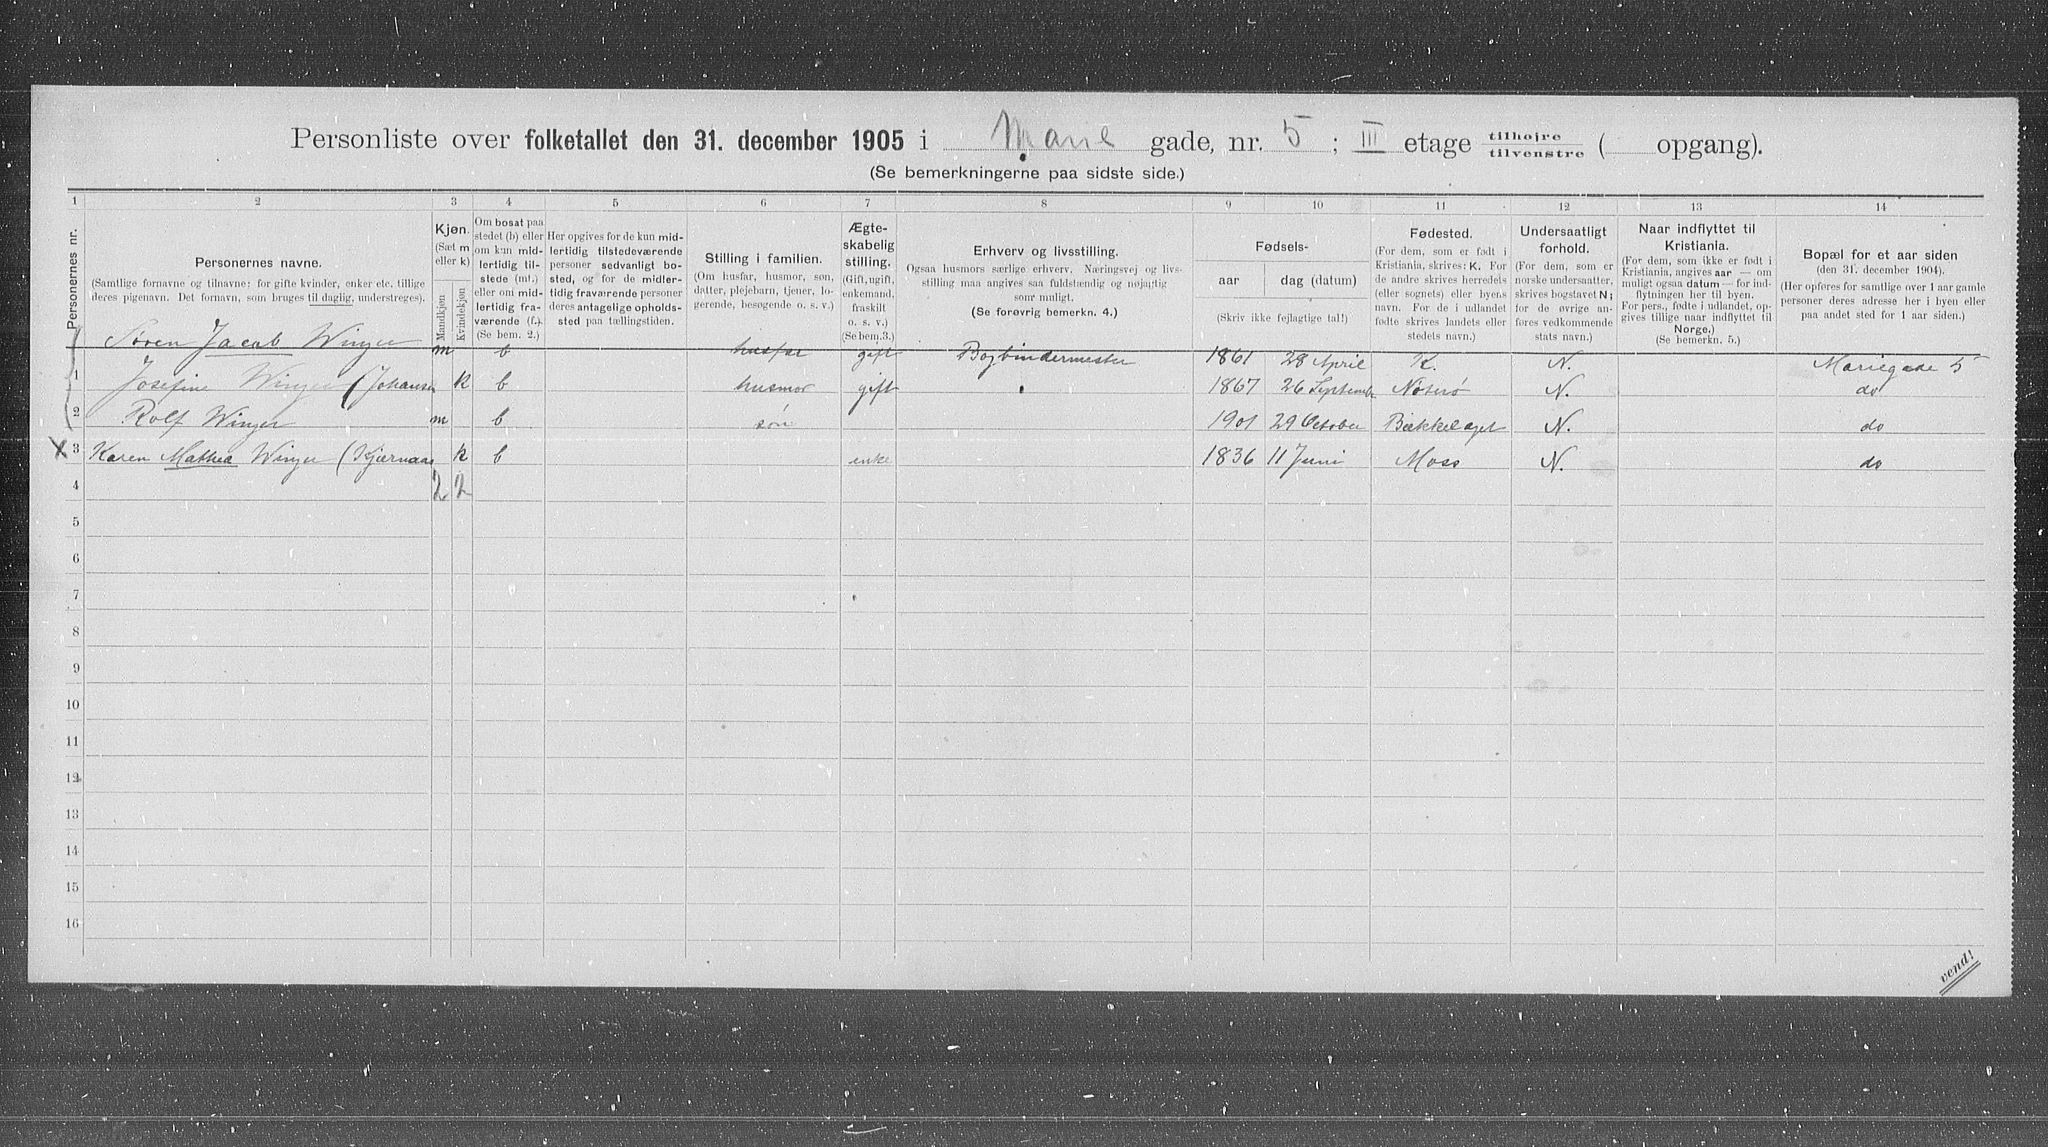 Personliste over folketallet den 31. december 1905 i Marie gade, nr. 5 ; III etage tilhøjre / tilvenstre ( opgang).
(Se bemerkningerne paa sidste side.)
1 2 3 4 5 6 7 8 9 10 11 12 13 14
Personernes nr.
Personernes navne.
(Samtlige fornavne og tilnavne; for gifte kvinder, enker etc. tillige
deres pigenavn. Det fornavn, som bruges til daglig, understreges).
Kjøn.
(Sæt m
eller k)
Mandkjøn
Kvindekjøn
Om bosat paa
stedet (b) eller
om kun mid-
lertidig til-
stede (mt.)
eller om mid-
lertidig fra-
værende (f.).
(Se bem. 2.)
Her opgives for de kun mid-
lertidig tilstedeværende
personer sedvanlig bo-
sted, og for de midler-
tidig fraværende personer
deres antagelige opholds-
sted paa tællingstiden.
Stilling i familien.
(Om husfar, husmor, søn,
datter, plejebarn, tjener, lo-
gerende, besøgende o. s. v.)
Ægte-
skabelig
stilling.
(Gift, ugift,
enkemand,
fraskilt
o. s. v.)
(Se bem.3.)
Erhverv og livsstilling.
Ogsaa husmors særlige erhverv. Næringsvej og livs-
stilling maa angives saa fuldstændig og nøjagtig
som muligt.
(Se forøvrig bemerkn. 4.)
Fødsels-
aar
dag (datum)
(Skriv ikke fejlagtige tal!)
Fødested.
(For dem, som er født i
Kristiania, skrives: K. For
de andre skrives herredets
(eller sognets) eller byens
navn. For de i udlandet
fødte skrives landets eller
stedets navn.)
Undersaatligt
forhold.
(For dem, som er
norske undersaatter,
skrives bogstavet N;
for de øvrige an-
føres vedkommende
stats navn.)
Naar indflyttet til
Kristiania.
(For dem, som ikke er født i
Kristiania, angives aar — om
muligt ogsaa datum — for ind-
flytningen her til byen.
For pers., fødte i udlandet, op-
gives tillige naar indflyttet til
Norge.)
(Se bemerkn. 5.)
Bopæl for et aar siden
(den 31. december 1904).
(Her opføres for samtlige over 1 aar gamle
personer deres adresse her i byen eller
paa andet sted for 1 aar siden.)
Søren Jacob Winger m b husfar gift Bogbindermester 1861 28 April K. N. Mariegade 5
1 Josefine Winger (Johansen k b husmor gift 1867 26 September Nøterø N. do
2 Rolf Winger m b søn 1901 29 October Bækkelaget N. do
X 3 Karen Mathea Winger (Kjærnaas k b enke 1836 11 Juni Moss N. do
4 2 2
5
6
7
8
9
10
11
12
13
14
15
16
vend!